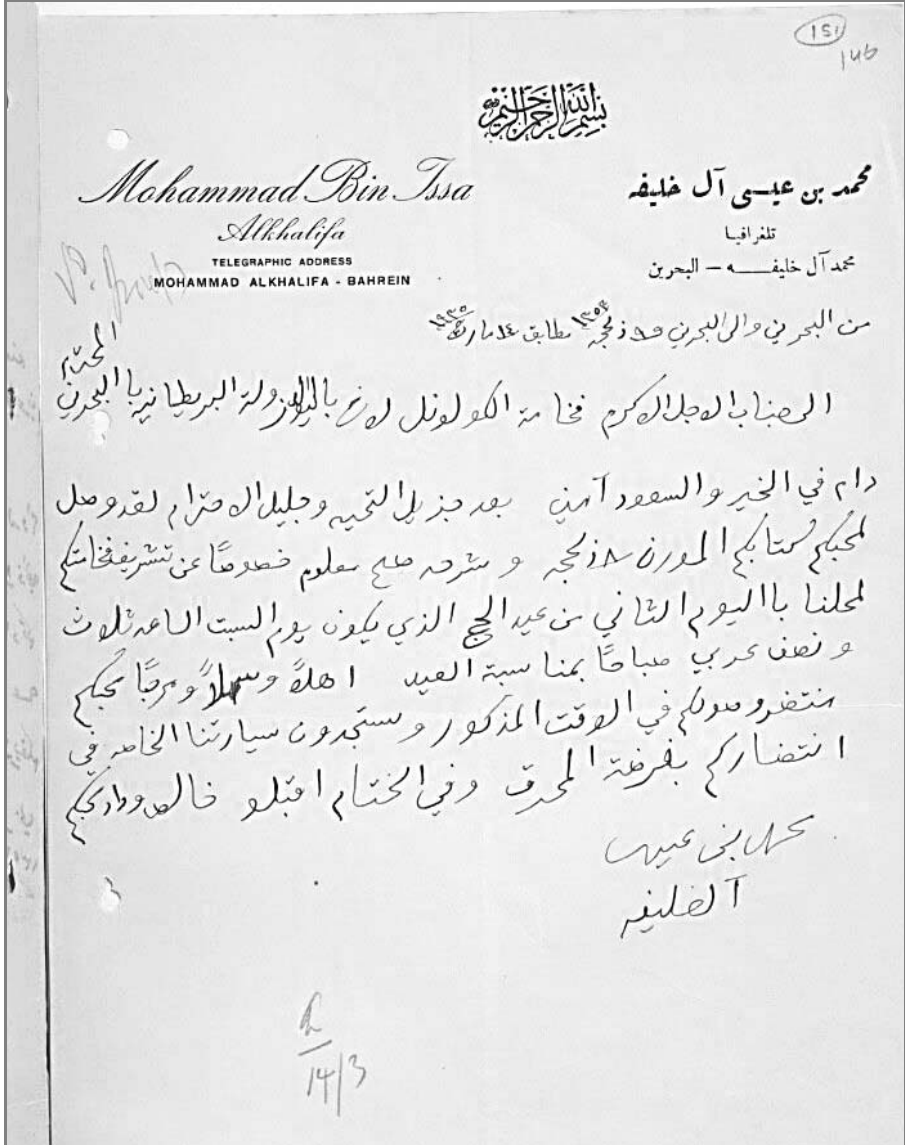 151
146
بسم الله الرحمن الرحيم
Mohammad Bin Issa
Alkhalifa
TELEGRAPHIC ADDRESS
MOHAMMAD ALKHALIFA - BAHREIN
محمد بن عيسى آل خليفه
تلغرافيا
محمد آل خليفـــه — البحرين
من البحرين والى البحرين ذلحجه ١٣٥٣ مطابق ١٤ مارت ١٩٣٥
الى جناب الاجل الاكرم فخامة الكولونل لاخ باليوز دولة البريطانيه باالبحرين المحترم
دام في الخير والسعود آمين بعد جزيل التحيه وجليل الاحترام لقد وصل
لمحبكم كتابكم المورخ ذلحجه و شرحه صار معلوم خصوصًا عن تشريف فخامتكم
لمحلنا باليوم الثاني من عيد الحج الذي يكون يوم السبت الساعه ثلاث
ونصف عربي صباحًا بمناسبة العيد اهلاً وسهلاً ومرحبًا محبكم
منتضر وصولكم في الوقت المذكور وستجدون سيارتنا الخاصه في
انتضاركم بفرضة المحرق وفي الختام اقبلو خالص وداد محبكم
محمد بن عيسى
آلخليفه
14/3